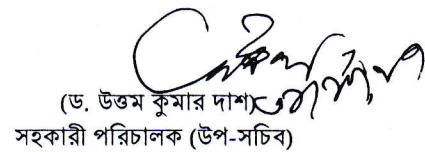 (ড. উত্তম কুমার দাশ)
সহকারী পরিচালক (উপ-সচিব)